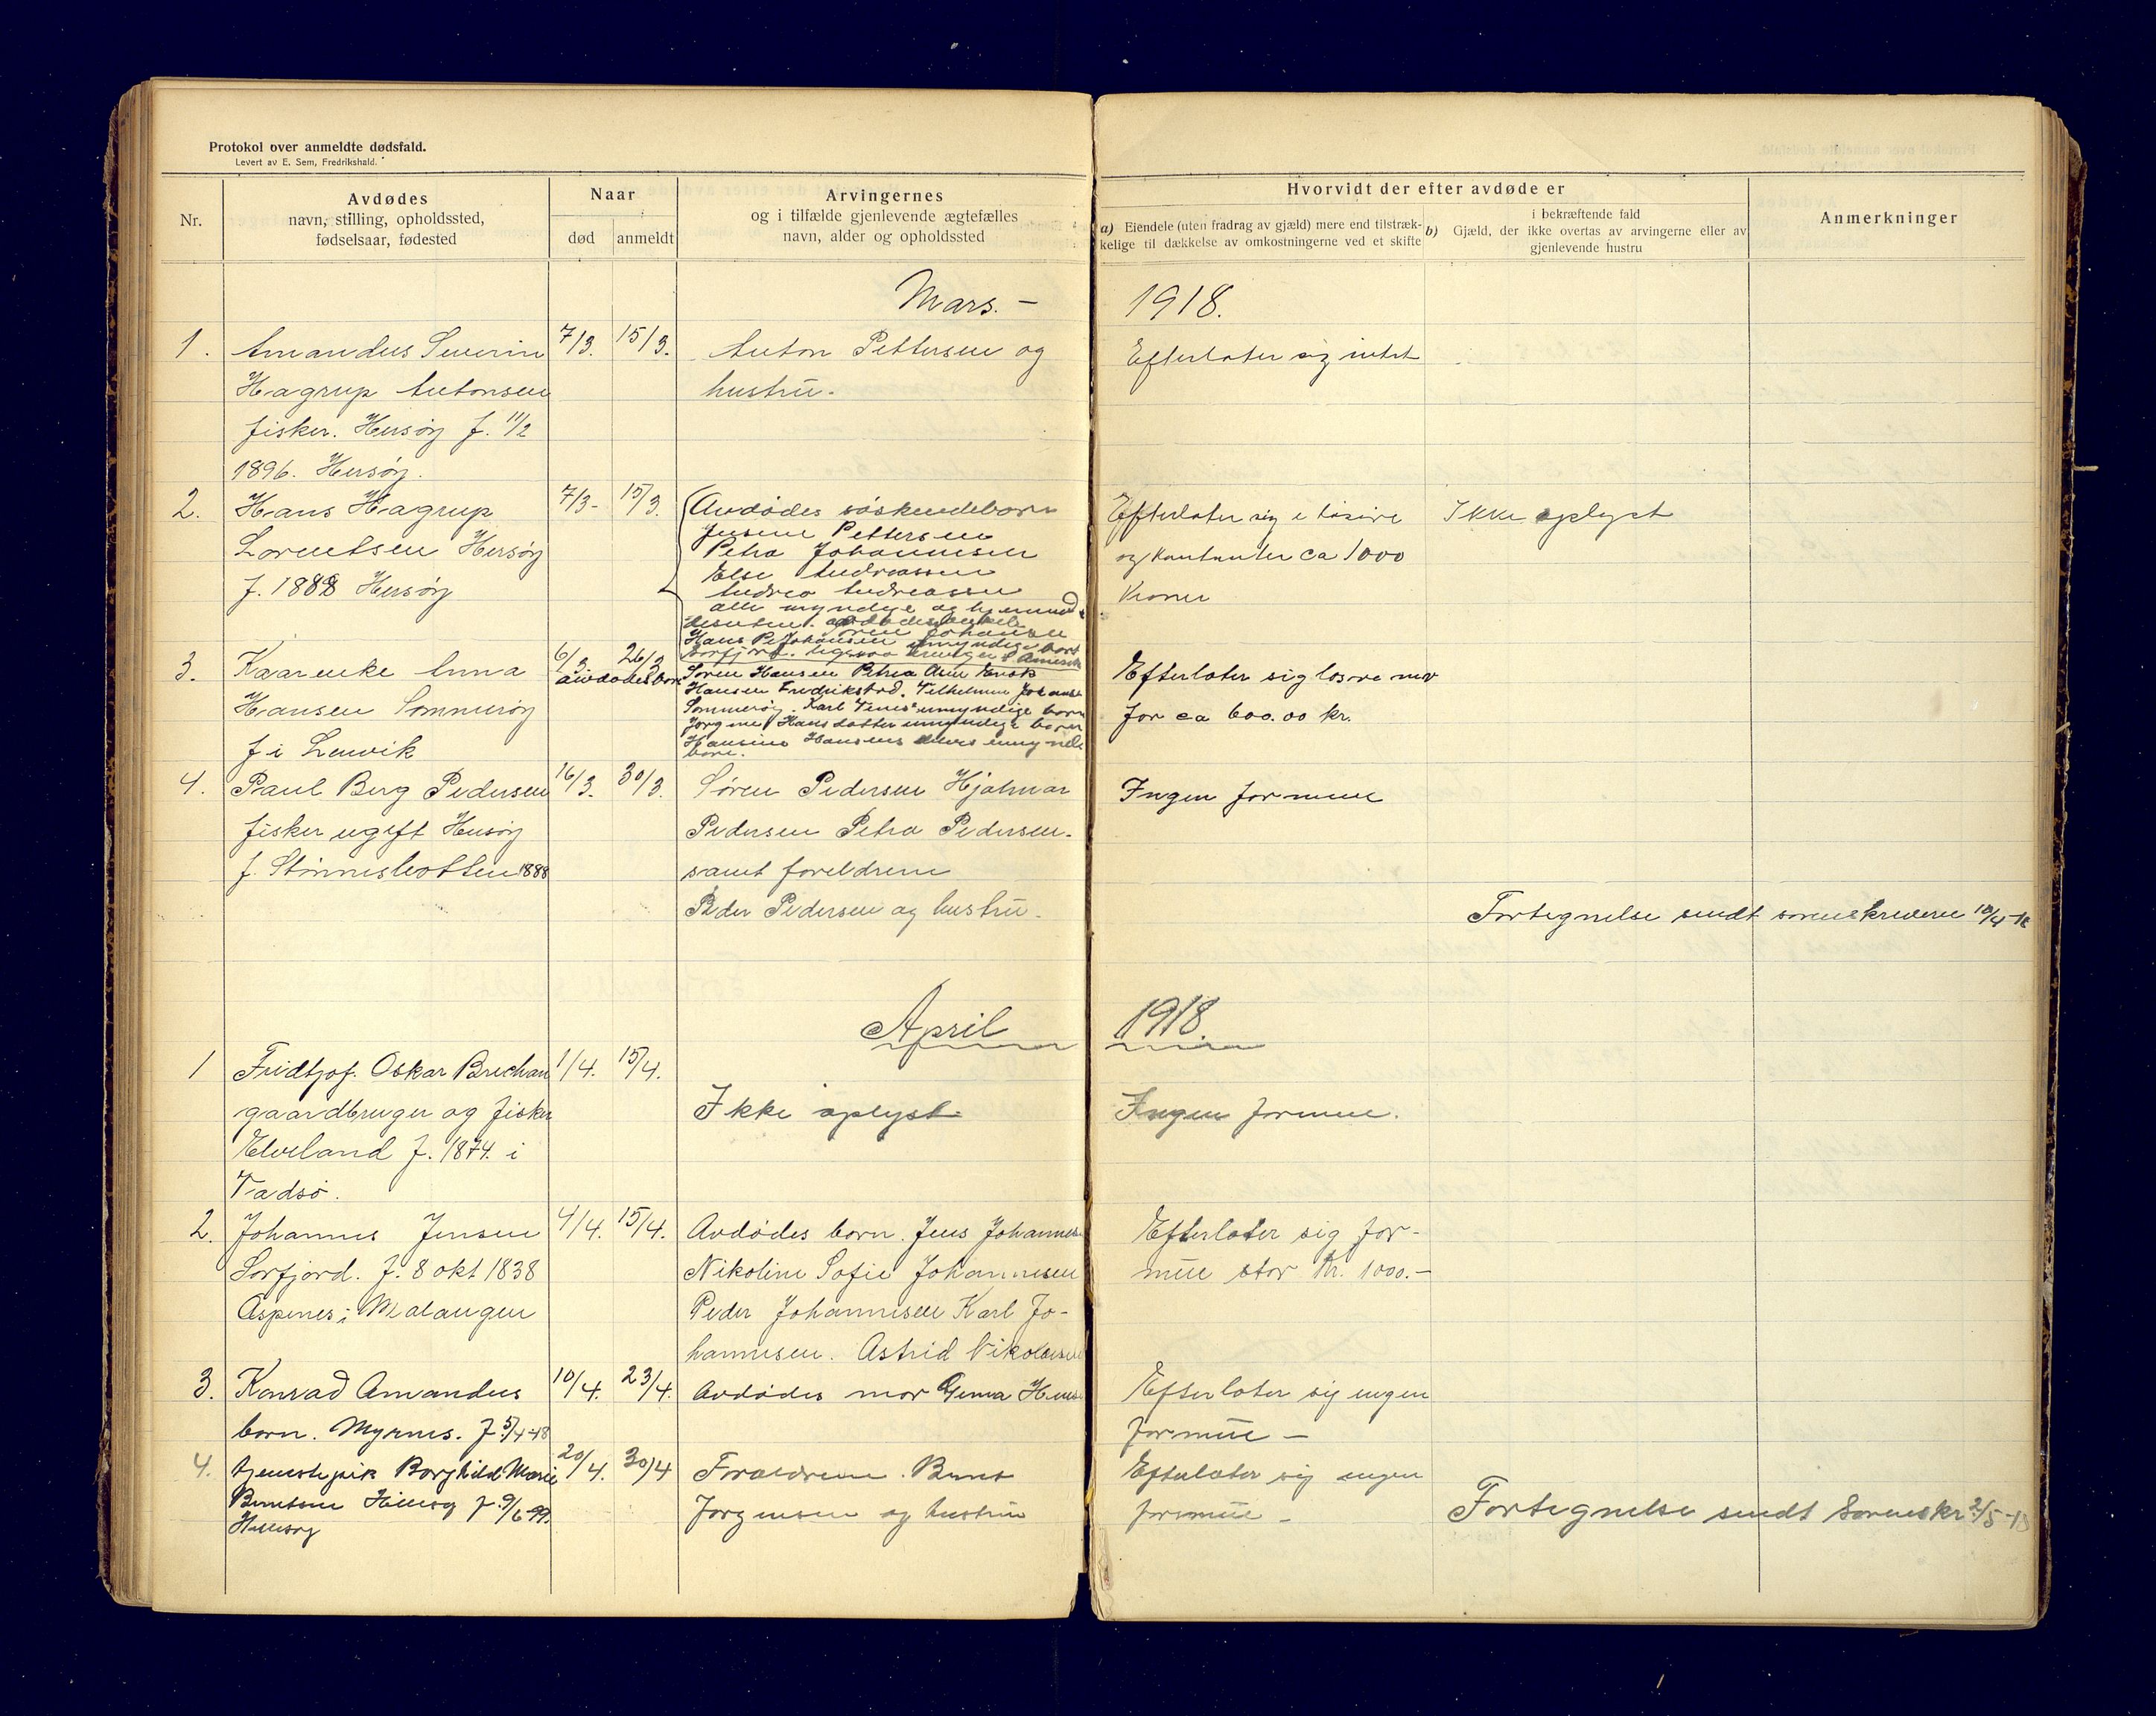 Protokol over anmeldte dødsfald.
Levert av E. Sem, Fredrikshald.
Nr.
Avdødes
navn, stilling, opholdssted,
fødselsaar, fødested
Naar
død
anmeldt
Arvingernes
og i tilfælde gjenlevende ægtefælles
navn, alder og opholdssted
Hvorvidt der efter avdøde er
a) Eiendele (uten fradrag av gjæld) mere end tilstræk-
kelige til dækkelse av omkostningerne ved et skifte
i bekræftende fald
b) Gjæld, der ikke overtas av arvingerne eller av
gjenlevende hustru
Anmerkninger
Mars. – 1918.
1. Amandus Severin 7/3. 15/3. Anton Pettersen og Efterlater sig intet
Hagrup Antonsen hustru.
fisker. Husøy f. 11/2
1896. Husøy.
2. Hans Hagrup 7/3- 15/3. Avdødes söskendebarn Efterlater sig i løsøre Ikke oplyst
Jensine Pettersen
Lorentsen Husøy Petra Johannesen og kontanter ca 1000
Else Andreassen
f. 1888 Husøy Andrea Andreassen Kroner
alle myndige og hjemme
Hans P Johansen umyndige
3. Kaarenke Anna 6/3- 26/3 avdødes barn Søren Hansen Petrea Efterlater sig løsøre
Hansen Fredrikstad.
Hansen Sommerøy Sommerøy. Karl umyndige barn for ca 600.00 kr.
Jørgine Hansdatter umyndige barn
f i Lenvik Hansine Hansens
barn.
4. Paul Berg Pedersen 16/3. 30/3. Søren Pedersen Hjalmar Ingen formue
fisker ugift Husøy Pedersen Petra Pedersen.
f. Stønnesbotten 1888 samt foreldrene
Peder Pedersen og hustru. Fortegnelse sendt sorenskriveren 10/4-18
April 1918.
1 Fridtjof. Oskar Brechan 1/4. 15/4.
gaardbruger og fisker Ikke oplyst Ingen formue.
Elveland f. 1874. i
Vadsø.
2. Johannes Jensen 4/4. 15/4. Avdødes børn. Jens Johannes. Efterlater sig for-
Sørfjord. f. 8 okt 1838 Nikoline Sofie Johannesen mue stor kr. 1000.–
Aspenes i Malangen Peder Johannesen Karl Jo-
hannesen. Astrid Nikolaisen
3. Konrad Amandus 10/4. 23/4. Avdødes mor Efterlater sig ingen
barn. Myrnes. f 5/4-18 formue –
4. tjenestepik Borghild Marie 20/4. 30/4 Foraeldrene. Bernt Efterlater sig ingen
Berntsen Hillesøy f. 9/6 99. Jørgensen og hustru formue – Fortegnelse sendt Sorenskr 2/5-18
Hillesøy